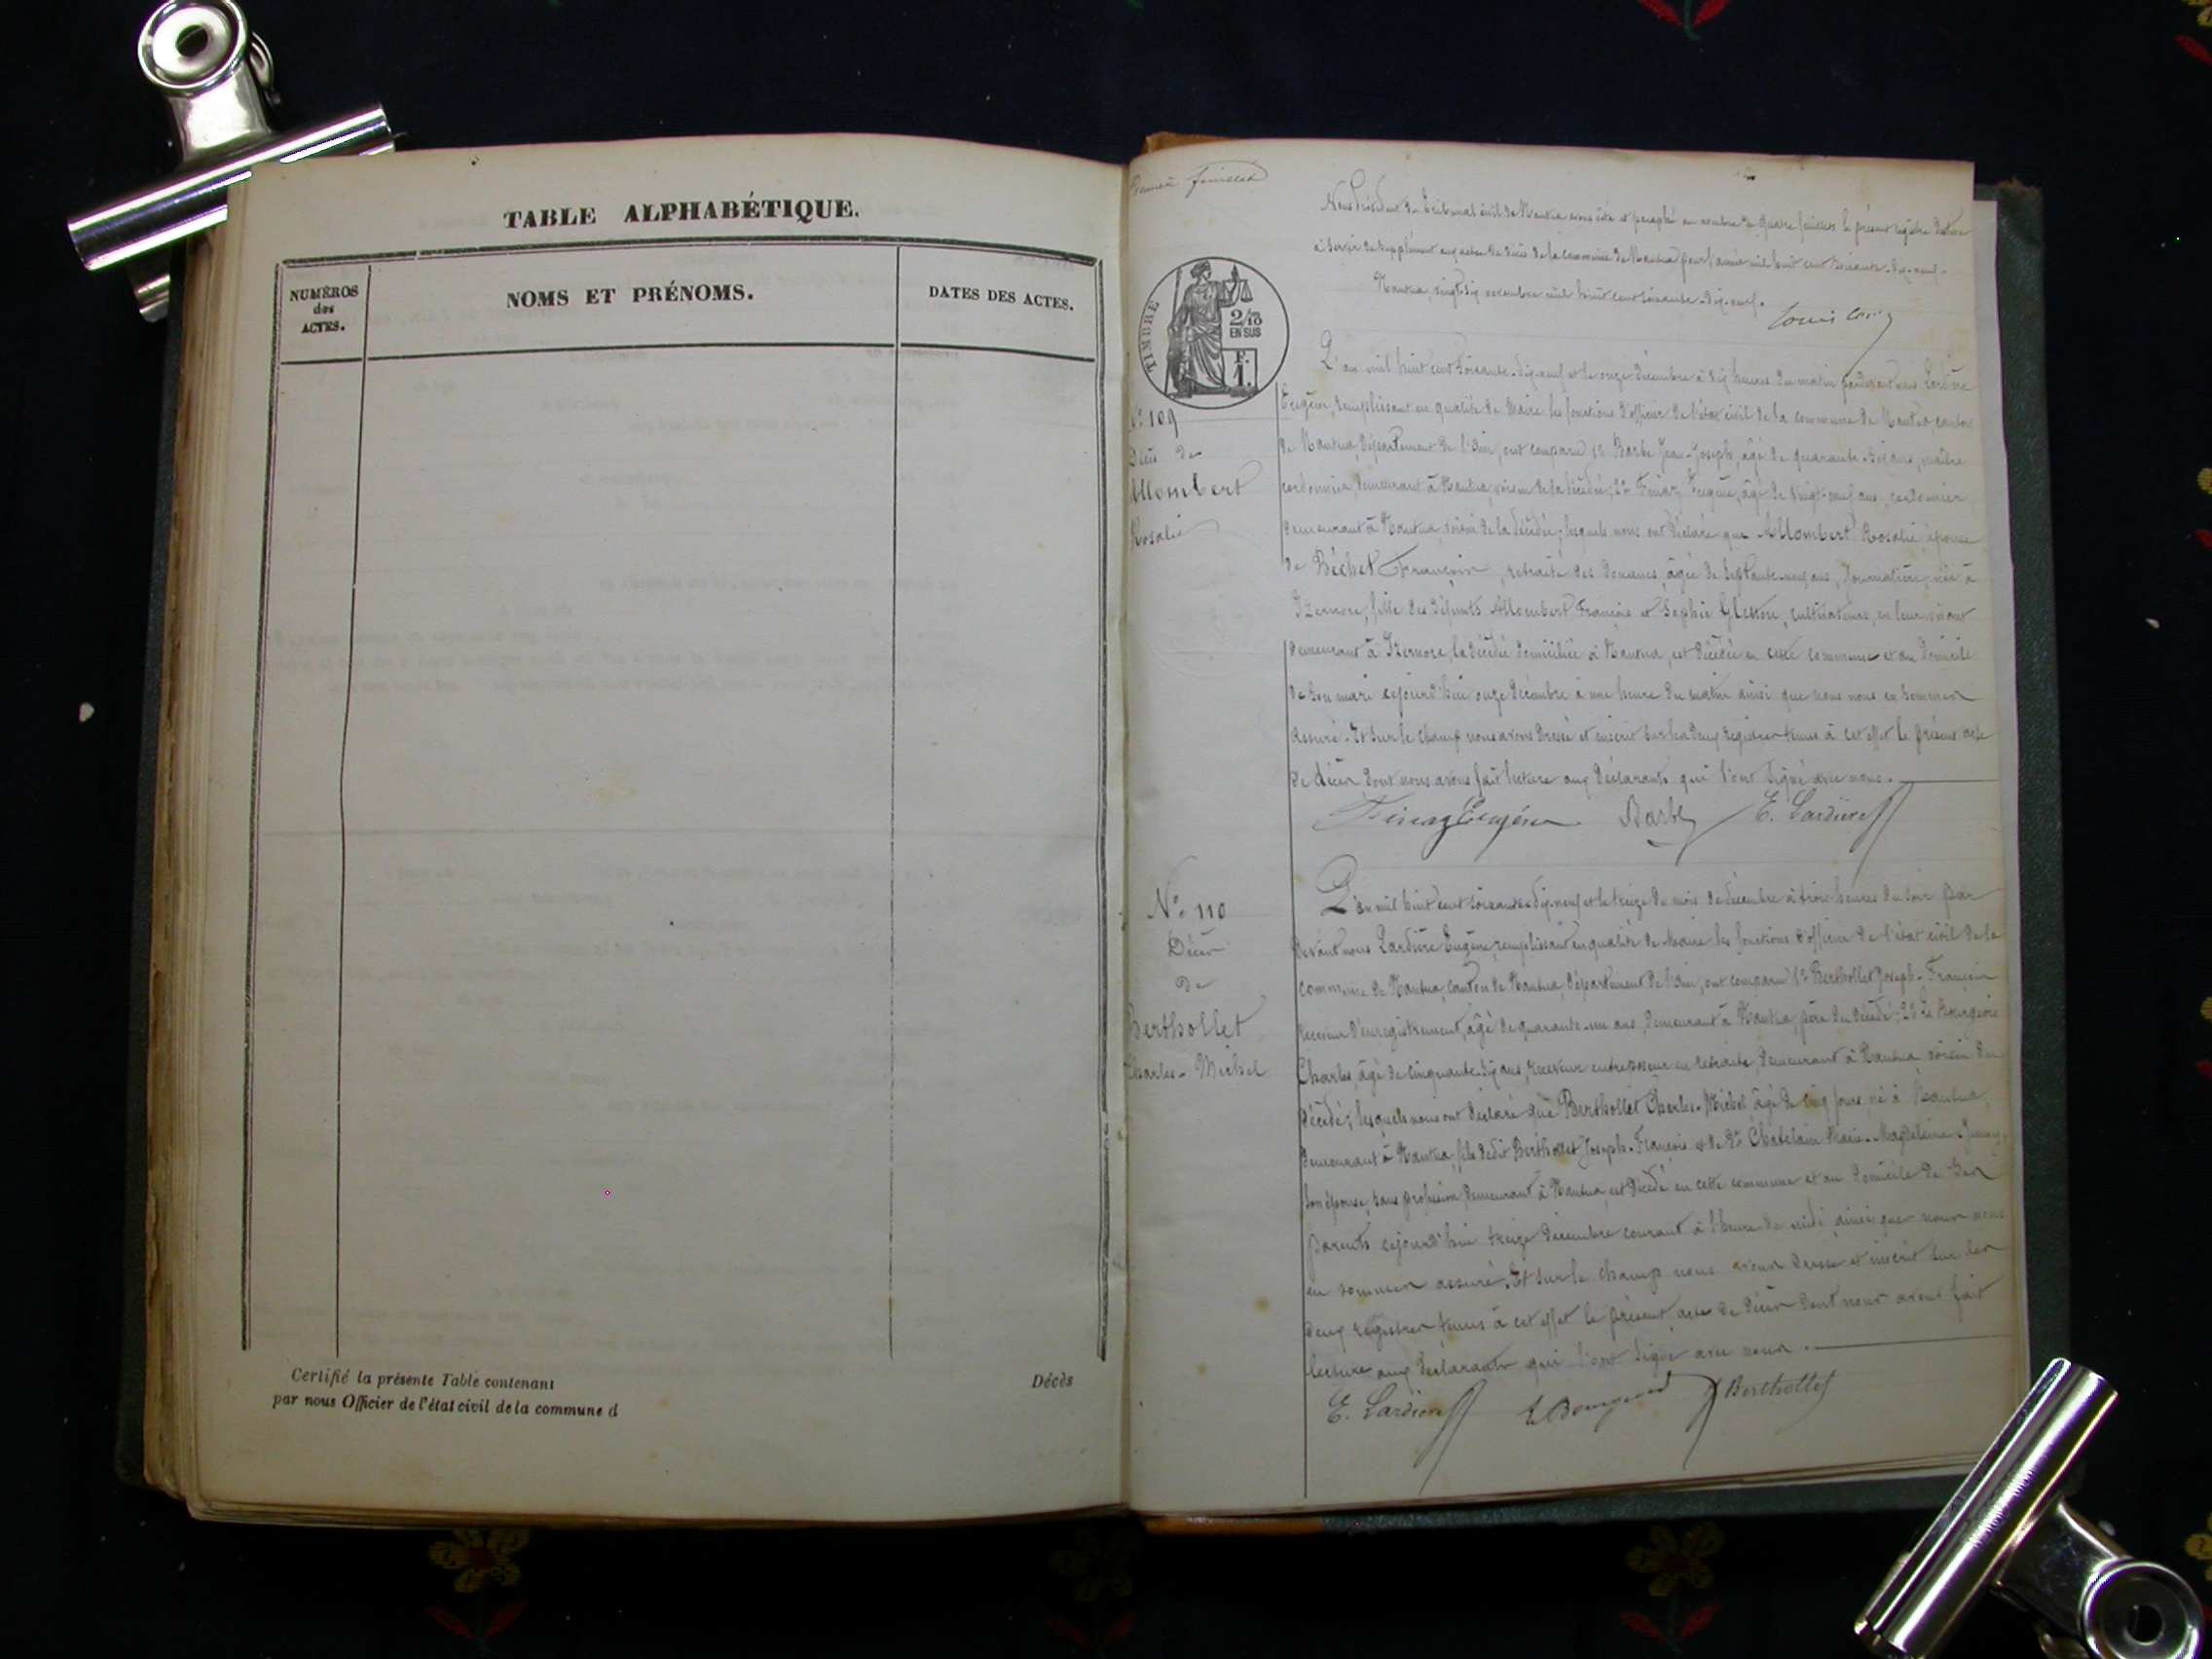 TABLE ALPHABÉTIQUE.
NUMÉROS
des
ACTES.
NOMS ET PRÉNOMS.
DATES DES ACTES.
Certifié la présente Table contenant
Décès
par nous Officier de l'état civil de la commune d
Premier feuillet
Nous Président du Tribunal civil de Nantua avons coté et paraphé au nombre de quatre feuillets le présent registre destiné
à servir de supplément aux actes de décès de la commune de Nantua pour l'année mil huit cent soixante-dix-neuf.
Nantua, vingt-six novembre mil huit cent soixante-dix-neuf.
TIMBRE
2/10
EN SUS
F.
1.
N° 109
Décès de
Allombert
Rosalie
L'an mil huit cent soixante-dix-neuf et le onze décembre à dix heures du matin pardevant nous Lardière
Eugène, remplissant en qualité de Maire les fonctions d'officier de l'état civil de la commune de Nantua, canton
de Nantua, département de l'Ain, ont comparu 1° Barbe Jean-Joseph, âgé de quarante- ans, maître
cordonnier, demeurant à Nantua, voisin de la décédée; 2° Finaz Eugène, âgé de vingt-neuf ans, cordonnier
demeurant à Nantua, voisin de la décédée; lesquels nous ont déclaré que Allombert Rosalie, épouse
de Béchet François, retraité des douanes, âgée de septante-neuf ans, Journalière, née à
Izernore, fille des défunts Allombert François et Sophie, cultivateurs, en leur vivant
demeurant à Izernore, la décédée domiciliée à Nantua, est décédée en cette commune et au domicile
de son mari cejourd'hui onze décembre à une heure du matin ainsi que nous nous en sommes
assuré. Et sur le champ nous avons dressé et inscrit sur les deux registres tenus à cet effet le présent acte
de décès dont nous avons fait lecture aux déclarants qui l'ont signé avec nous.
Finaz Eugène Barbe E. Lardière
N° 110
Décès
de
Berthollet
Charles-Michel
L'an mil huit cent soixante-dix-neuf et le treize du mois de décembre à trois heures du soir par
devant nous Lardière Eugène, remplissant en qualité de Maire les fonctions d'officier de l'état civil de la
commune de Nantua, canton de Nantua, département de l'Ain, ont comparu 1° Berthollet Joseph-François
receveur d'enregistrement, âgé de quarante-un ans, demeurant à Nantua, père du décédé; 2° Le Bourgeois
Charles, âgé de cinquante-six ans, receveur entreposeur en retraite, demeurant à Nantua voisin du
décédé; lesquels nous ont déclaré que Berthollet Charles-Michel, âgé de cinq jours, né à Nantua,
demeurant à Nantua, fils dudit Berthollet Joseph-François et de De Chatelain Marie-Magdeleine-
son épouse, sans profession, demeurant à Nantua, est décédé en cette commune et au domicile de ses
parents cejourd'hui treize décembre courant à l'heure de midi ainsi que nous nous
en sommes assuré. Et sur le champ nous avons dressé et inscrit sur les
deux registres tenus à cet effet le présent acte de décès dont nous avons fait
lecture aux déclarants qui l'ont signé avec nous.
E. Lardière Le Bourgeois Berthollet